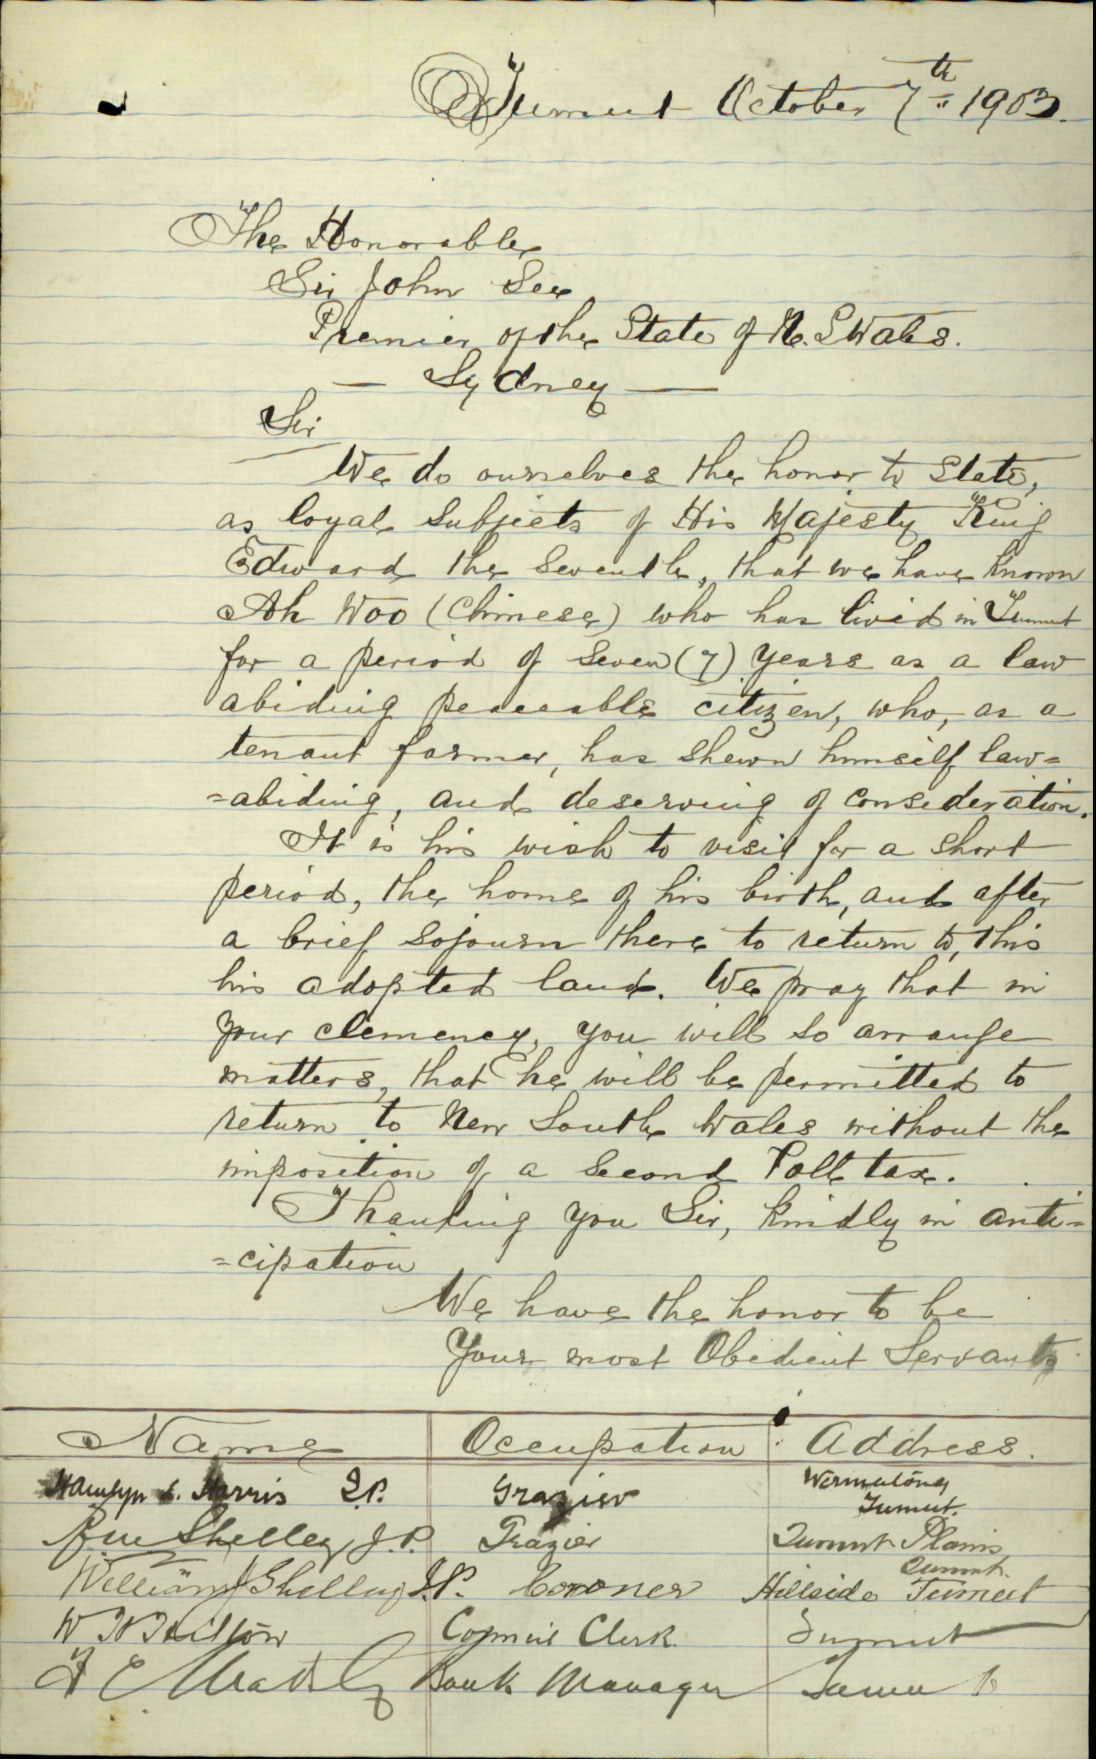 Tumut October 7th 1903.
The Honorable
Sir John See
Premier of the State of N. S Wales.
— Sydney —
Sir
We do ourselves the honor to state,
as loyal subjects of His Majesty King
Edward the Seventh, that we have known
Ah Woo (Chinese) who has lived in Tumut
for a period of seven (7) years as a law
abiding peaceable citizen, who, as a
tenant farmer, has shewn himself law=
=abiding, and deserving of consideration.
It is his wish to visit for a short
period, the home of his birth, and after
a brief sojourn there to return to, this
his adopted land. We pray that in
your clemency, you will so arrange
matters, that he will be permitted to
return to New South Wales without the
imposition of a second Poll tax.
Thanking you Sir, kindly in anti=
=cipation
We have the honor to be
Your most Obedient Servants
Name Occupation Address.
Hamlyn L. Harris J.P. Grazier
Tumut.
Shelley J.P. Grazier Tumut Plains
Tumut.
William J Shelley J.P. Coroner Hillside Tumut
W H Hilton Council Clerk Tumut
Bank Manager Tumut